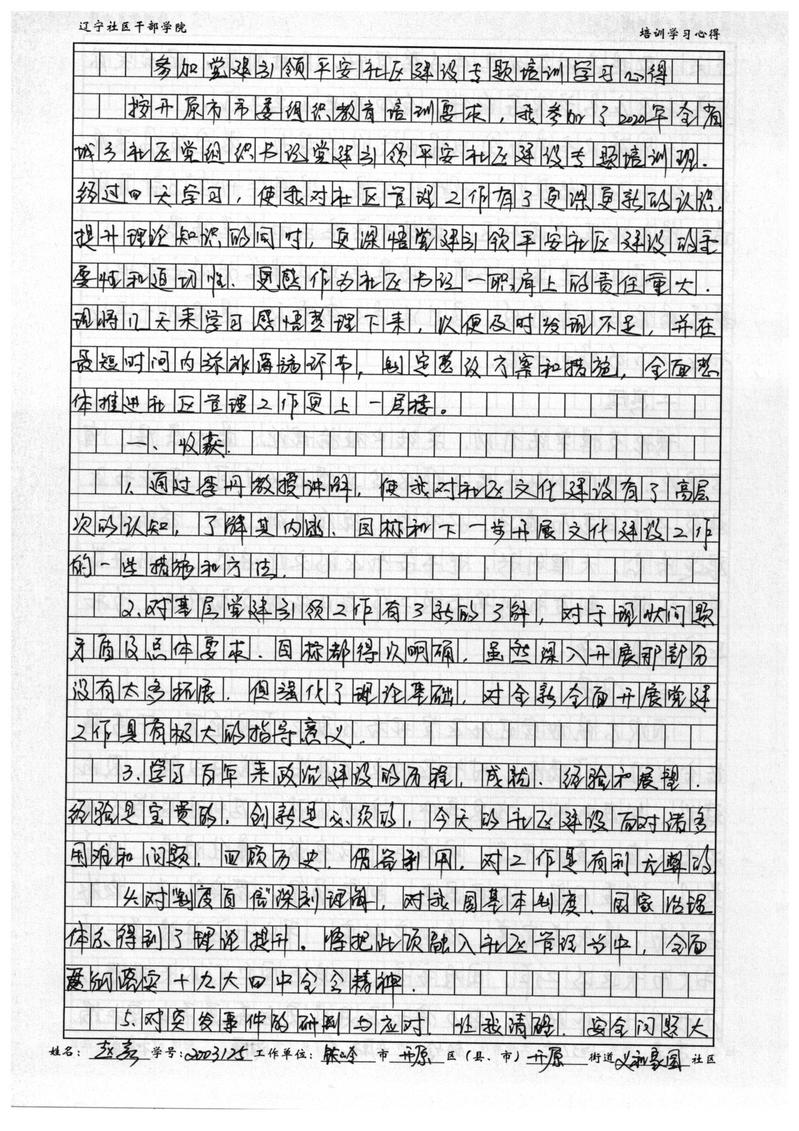 辽宁社区干部学院 培训学习心得
参加党建引领平安社区建设专题培训学习心得
按开原市市委组织教育培训要求，我参加了2020年全省
城乡社区党组织书记党建引领平安社区建设专题培训班.
经过四天学习，使我对社区管理工作有了更深更新的认识,
提升理论知识的同时，更深悟党建引领平安社区建设的重
要性和迫切性.更感作为社区书记一职,肩上的责任重大.
现将几天来学习感悟整理下来，以便及时发现不足，并在
最短时间内弥补薄弱环节，制定整改方案和措施，全面整
体推进社区管理工作更上一层楼。
一、收获:
1.通过 丹教授讲解，使我对社区文化建设有了高层
次的认知，了解其内涵、目标和下一步开展文化建设工作
的一些措施和方法.
2.对基层党建引领工作有了新的了解，对于现状问题
矛盾及总体要求.目标都得以明确，虽然深入开展那部分
没有太多拓展，但强化了理论基础，对全新全面开展党建
工作具有极大的指导意义.
3.学习百年来政法建设的历程，成就、经验和展望.
经验是宝贵的，创新是必须的，今天的社区建设面对诸多
困难和问题，回顾历史，借鉴利用，对工作是有利无弊的
4.对"制度自信"深刻理解，对我国基本制度、国家治理
体系得到了理论提升。将把此项融入社区管理当中，全面
贯彻落实十九大四中全会精神.
5.对突发事件的研判与应对.让我清醒.安全问题大
姓名：赵嘉 学号:2003125 工作单位：铁岭 市 开原 区（县、市） 开原 街道 义和家园 社区